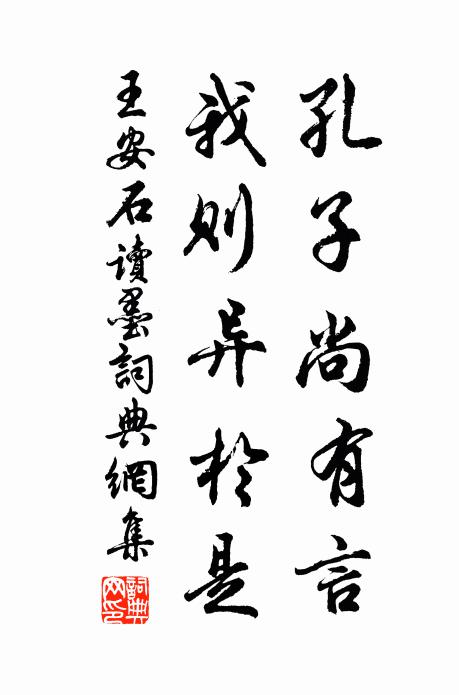 孔子尚有言
我则异於是
王安石讀墨詞典網集
詞典网印